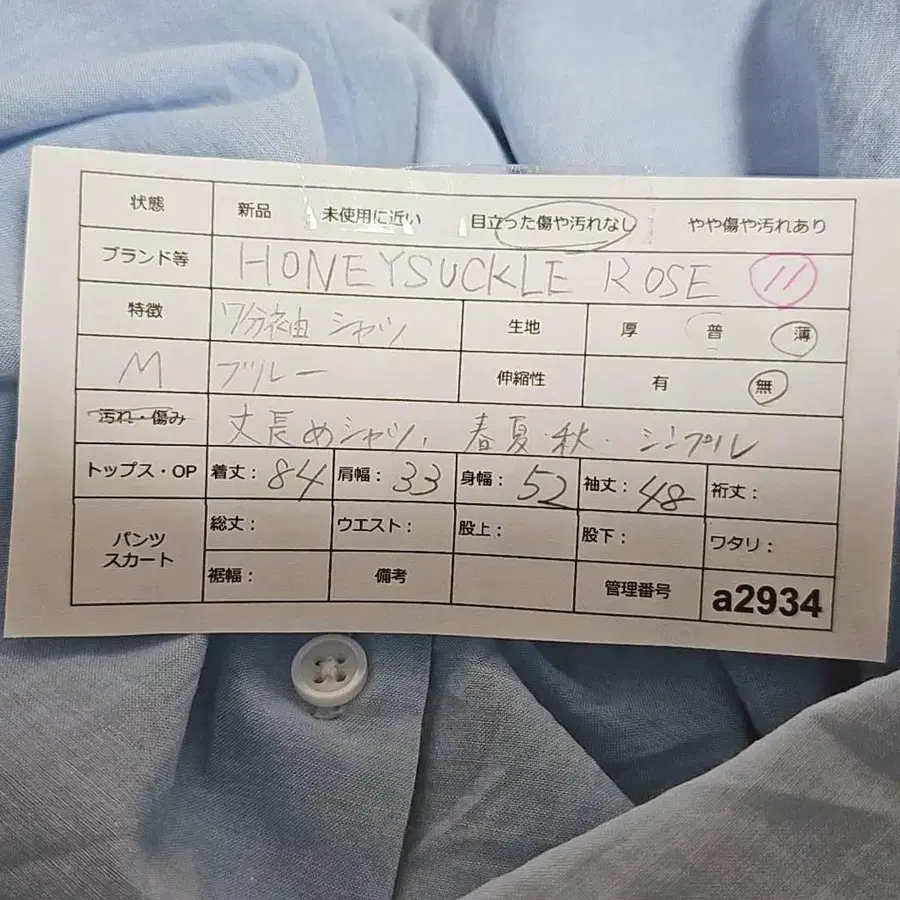 状態 新品 未使用に近い 目立った傷や汚れなし やや傷や汚れあり
ブランド等 HONEYSUCKLE ROSE 11
特徴 7分袖 シャツ 生地 厚 普 薄
M ブルー 伸縮性 有 無
汚れ・傷み 丈長めシャツ、春夏・秋・シンプル
トップス・OP 着丈：84 肩幅：33 身幅：52 袖丈：48 裄丈：
パンツ スカート 総丈： ウエスト： 股上： 股下： ワタリ：
裾幅： 備考 管理番号 a2934